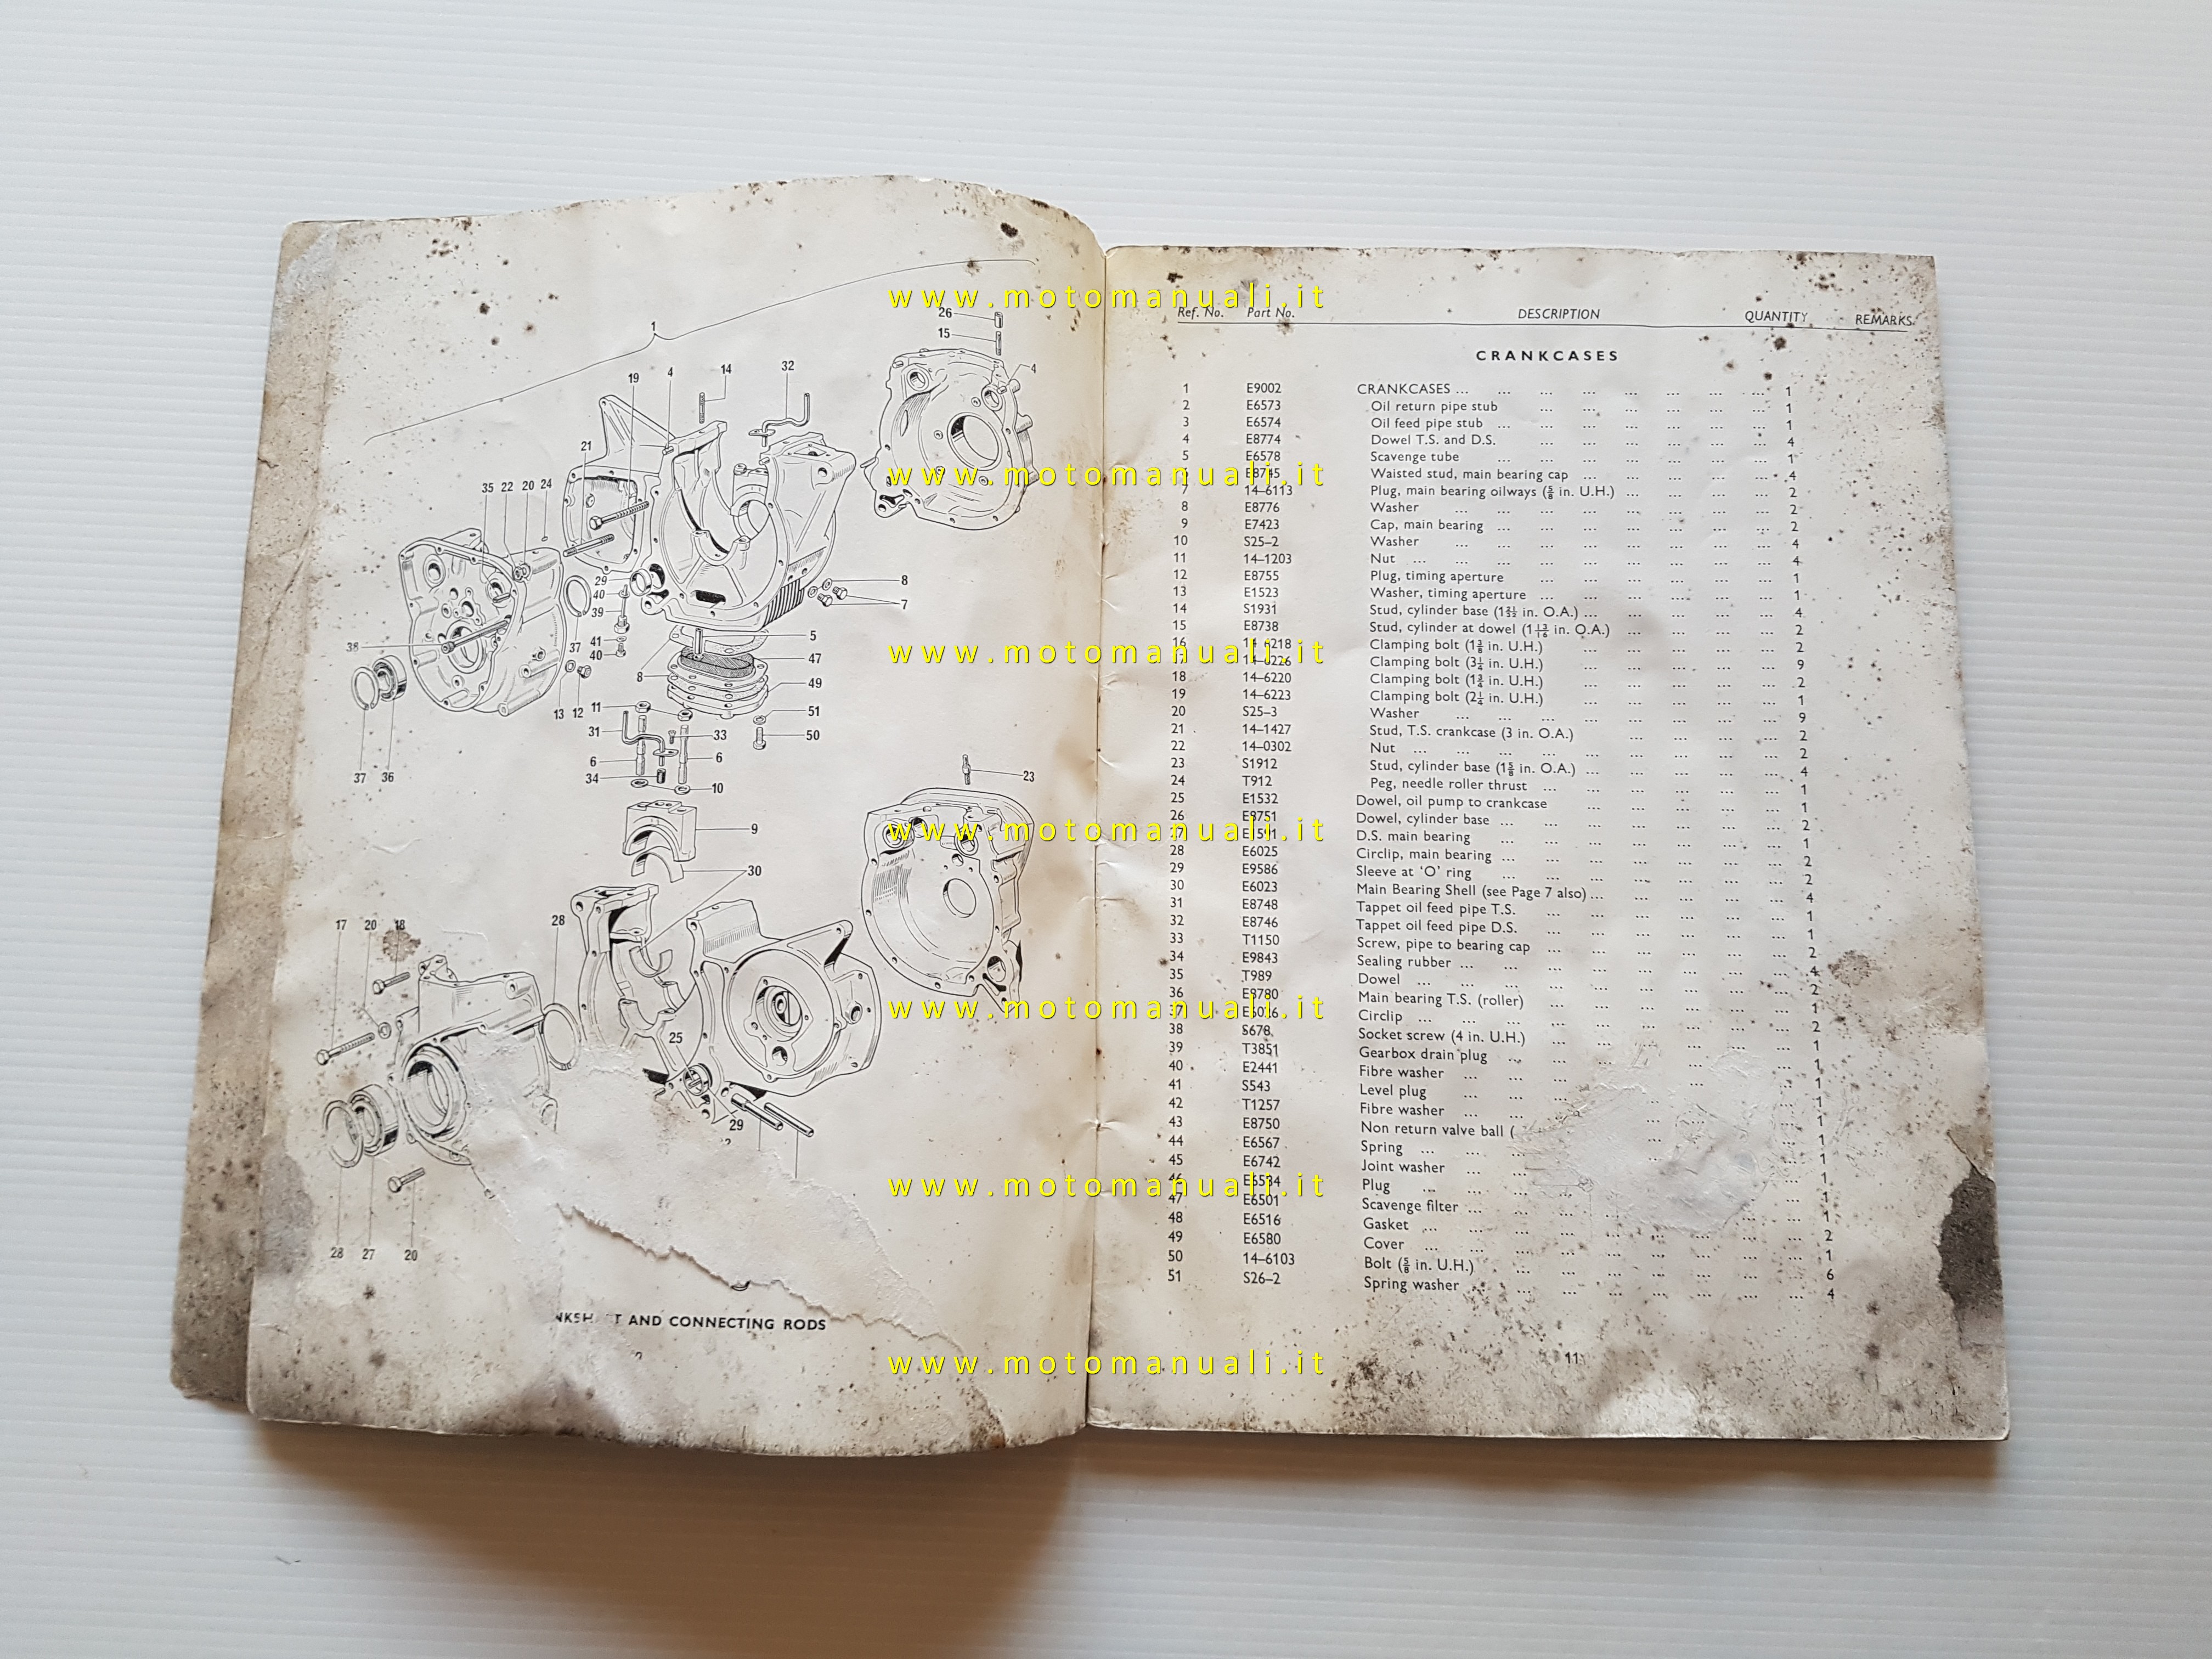 www.motomanuali.it
www.motomanuali.it
www.motomanuali.it
www.motomanuali.it
www.motomanuali.it
www.motomanuali.it
www.motomanuali.it
1
26
15
4
32
14
4
19
21
35 22 20 24
29
40
39
41
40
37
38
13 12
37 36
8
7
5
47
8
49
51
50
11
31
33
6
6
34
10
9
30
23
17 20 18
28
25
29
28 27 20
T AND CONNECTING RODS
Ref. No. Part No. DESCRIPTION QUANTITY REMARKS
CRANKCASES
1 E9002 CRANKCASES ... ... ... ... ... ... ... ... 1
2 E6573 Oil return pipe stub ... ... ... ... ... ... 1
3 E6574 Oil feed pipe stub ... ... ... ... ... ... ... 1
4 E8774 Dowel T.S. and D.S. ... ... ... ... ... ... 4
5 E6578 Scavenge tube ... ... ... ... ... ... ... 1
Waisted stud, main bearing cap ... ... ... ... ... 4
7 14–6113 Plug, main bearing oilways (⅝ in. U.H.) ... ... ... ... 2
8 E8776 Washer ... ... ... ... ... ... ... 2
9 E7423 Cap, main bearing ... ... ... ... ... ... ... 2
10 S25–2 Washer ... ... ... ... ... ... ... ... 4
11 14–1203 Nut ... ... ... ... ... ... ... ... 4
12 E8755 Plug, timing aperture ... ... ... ... ... ... 1
13 E1523 Washer, timing aperture ... ... ... ... ... ... 1
14 S1931 Stud, cylinder base (1 23/32 in. O.A.) ... ... ... ... ... 4
15 E8738 Stud, cylinder at dowel (1 13/16 in. O.A.) ... ... ... ... 2
16 Clamping bolt (1⅜ in. U.H.) ... ... ... ... ... 2
Clamping bolt (3¼ in. U.H.) ... ... ... ... ... 9
18 14–6220 Clamping bolt (1¾ in. U.H.) ... ... ... ... ... 2
19 14–6223 Clamping bolt (2¼ in. U.H.) ... ... ... ... ... 1
20 S25–3 Washer ... ... ... ... ... ... ... ... 9
21 14–1427 Stud, T.S. crankcase (3 in. O.A.) ... ... ... ... ... 2
22 14–0302 Nut ... ... ... ... ... ... ... ... 2
23 S1912 Stud, cylinder base (1⅝ in. O.A.) ... ... ... ... ... 4
24 T912 Peg, needle roller thrust ... ... ... ... ... ... 1
25 E1532 Dowel, oil pump to crankcase ... ... ... ... ... 1
26 E8751 Dowel, cylinder base ... ... ... ... ... ... ... 2
D.S. main bearing ... ... ... ... ... ... 1
28 E6025 Circlip, main bearing ... ... ... ... ... ... ... 2
29 E9586 Sleeve at ‘O’ ring ... ... ... ... ... ... ... 2
30 E6023 Main Bearing Shell (see Page 7 also) ... ... ... ... ... 4
31 E8748 Tappet oil feed pipe T.S. ... ... ... ... ... ... 1
32 E8746 Tappet oil feed pipe D.S. ... ... ... ... ... ... 1
33 T1150 Screw, pipe to bearing cap ... ... ... ... ... ... 2
34 E9843 Sealing rubber ... ... ... ... ... ... ... ... 4
35 T989 Dowel ... ... ... ... ... ... ... ... 2
36 Main bearing T.S. (roller) ... ... ... ... ... ... 1
Circlip ... ... ... ... ... ... ... ... 2
38 S678 Socket screw (4 in. U.H.) ... ... ... ... ... ... 1
39 T3851 Gearbox drain plug ... ... ... ... ... ... ... 1
40 E2441 Fibre washer ... ... 1
41 S543 Level plug ... 1
42 T1257 Fibre washer ... ... 1
43 E8750 Non return valve ball ( 1
44 E6567 Spring ... ... ... 1
45 E6742 Joint washer ... ... 1
Plug ... ... ... 1
47 E6501 Scavenge filter ... ... 1
48 E6516 Gasket ... ... ... 2
49 E6580 Cover ... ... ... ... ... ... ... ... 1
50 14–6103 Bolt (⅝ in. U.H.) ... ... ... ... ... ... ... 6
51 S26–2 Spring washer ... ... ... ... ... ... ... 4
11